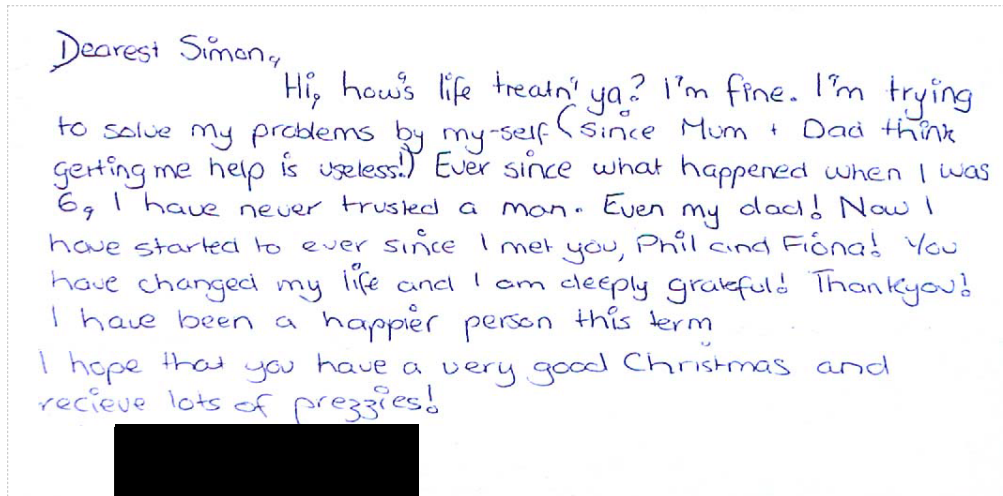 Dearest Simon,
Hi, how's life treatn' ya? I'm fine. I'm trying
to solve my problems by my-self (since Mum + Dad think
getting me help is useless!) Ever since what happened when I was
6, I have never trusted a man. Even my dad! Now I
have started to ever since I met you, Phil and Fiona! You
have changed my life and I am deeply grateful! Thankyou!
I have been a happier person this term
I hope that you have a very good Christmas and
recieve lots of prezzies!